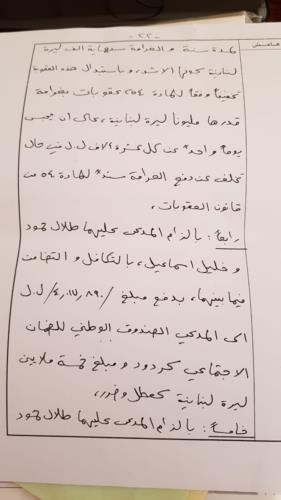 - ٢٢ -
لمدة سنة و الغرامة سبعماية الف ليرة
لبنانية كونها الاشد، و باستبدال هذه العقوبة
تخفيفاً وفقاً للمادة ٢٥٤ عقوبات بغرامة
قدرها مليوناً ليرة لبنانية، على ان يحبس
يوماً واحداً عن كل عشرة الاف ل.ل في حال
تخلف عن دفع الغرامة سنداً للمادة ٥٤ من
قانون العقوبات.
رابعاً: بالزام المدعى عليهما طلال حمود
و خليل اسماعيل، بالتكافل و التضامن
فيما بينهما، بدفع مبلغ /٤,١٧٠,٨٩٠/ ل.ل
الى المدعي الصندوق الوطني للضمان
الاجتماعي كردود و مبلغ خمسة ملايين
ليرة لبنانية كعطل و ضرر،
خامساً: بالزام المدعى عليهما طلال حمود